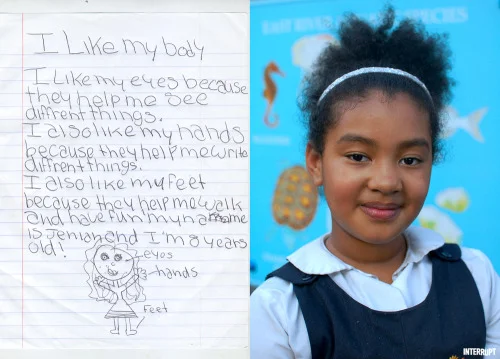 I Like my body
I like my eyes because
they help me see
diffrent things.
I also like my hands
because they help me write
diffrent things.
I also like my feet
because they help me walk
and have fun! my name
is Jeniah and I'm 8 years
old!
eyes
hands
feet
EAST RIVER SPECIES
INTERRUPT